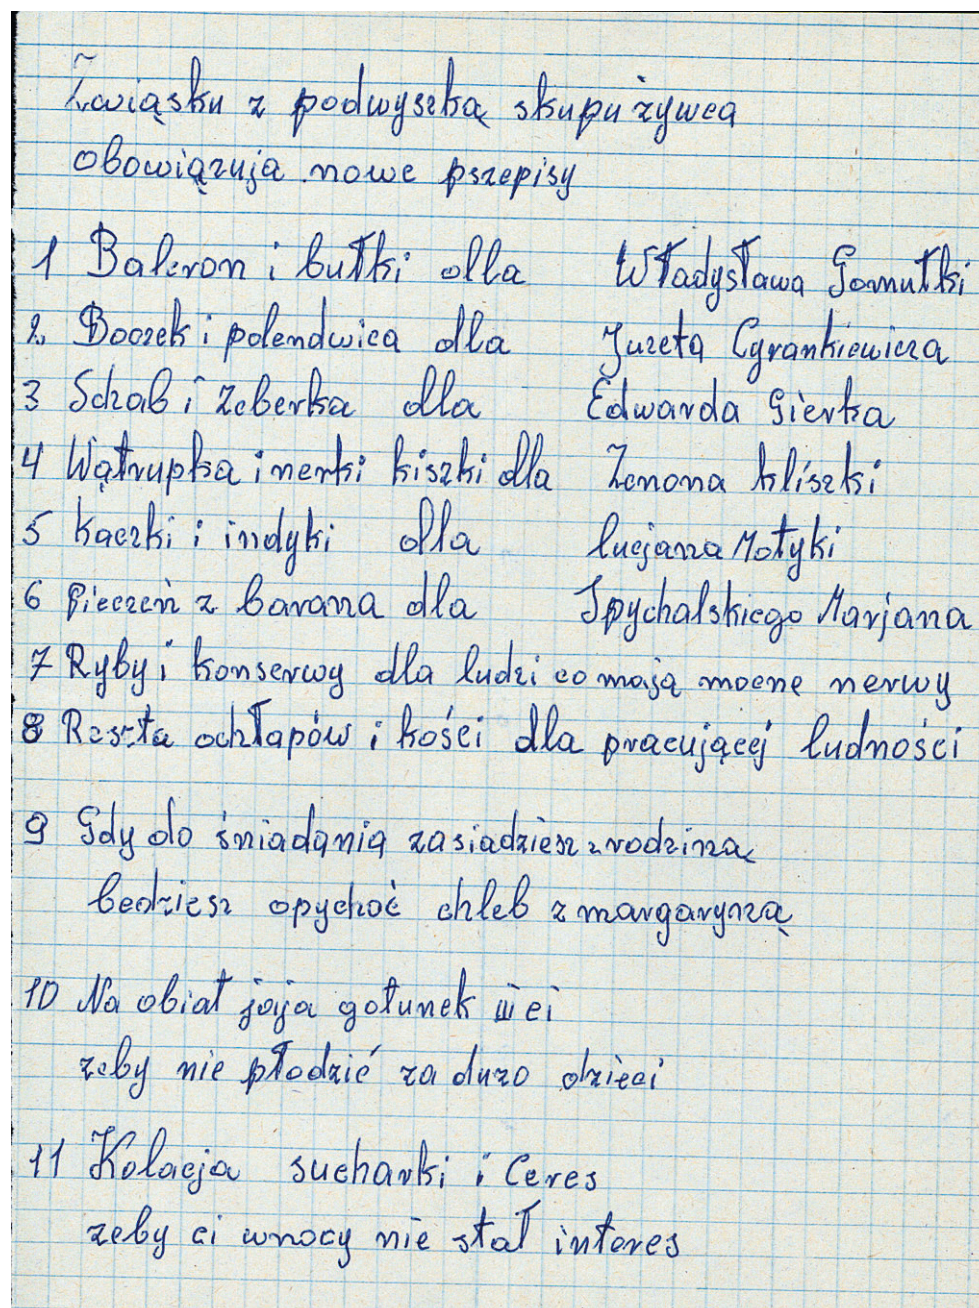 Związku z podwyszką skupu żywca
obowiązuja nowe pszepisy
1 Baleron i bułki dla Władysława Gomułki
2. Boczek i polendwica dla Juzefa Cyrankiewicza
3 Schab i żeberka dla Edwarda Gierka
4 Wątrupka i nerki kiszki dla Zenona kliszki
5 kaczki i indyki dla lucjana Motyki
6 pieczeń z barana dla Spychalskiego Marjana
7 Ryby i konserwy dla ludzi co mają mocne nerwy
8 Reszta ochłapów i kości dla pracującej ludności
9 Gdy do śniadania zasiadziesz z rodziną
bedziesz opychać chleb z margaryną
10 Na obiat jaja gotunek III ci
zeby nie płodzić za duzo dzieci
11 Kolacja sucharki i Ceres
zeby ci wnocy nie stał interes